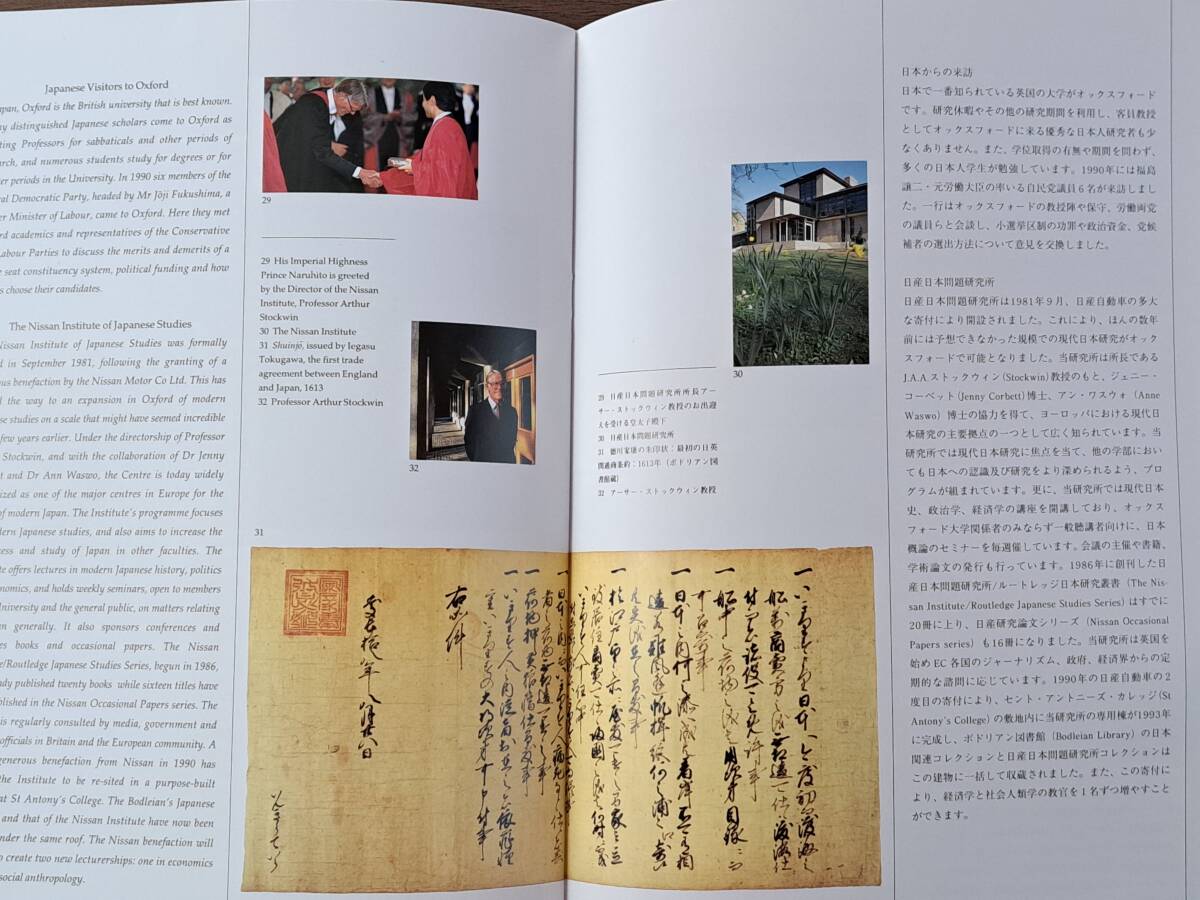 Japanese Visitors to Oxford
pan, Oxford is the British university that is best known.
y distinguished Japanese scholars come to Oxford as
ting Professors for sabbaticals and other periods of
arch, and numerous students study for degrees or for
er periods in the University. In 1990 six members of the
ral Democratic Party, headed by Mr Jōji Fukushima, a
er Minister of Labour, came to Oxford. Here they met
rd academics and representatives of the Conservative
Labour Parties to discuss the merits and demerits of a
e seat constituency system, political funding and how
s choose their candidates.
The Nissan Institute of Japanese Studies
Nissan Institute of Japanese Studies was formally
d in September 1981, following the granting of a
ous benefaction by the Nissan Motor Co Ltd. This has
d the way to an expansion in Oxford of modern
se studies on a scale that might have seemed incredible
few years earlier. Under the directorship of Professor
Stockwin, and with the collaboration of Dr Jenny
t and Dr Ann Waswo, the Centre is today widely
ized as one of the major centres in Europe for the
of modern Japan. The Institute's programme focuses
dern Japanese studies, and also aims to increase the
ess and study of Japan in other faculties. The
te offers lectures in modern Japanese history, politics
nomics, and holds weekly seminars, open to members
University and the general public, on matters relating
an generally. It also sponsors conferences and
es books and occasional papers. The Nissan
e/Routledge Japanese Studies Series, begun in 1986,
dy published twenty books while sixteen titles have
blished in the Nissan Occasional Papers series. The
is regularly consulted by media, government and
officials in Britain and the European community. A
generous benefaction from Nissan in 1990 has
the Institute to be re-sited in a purpose-built
at St Antony's College. The Bodleian's Japanese
and that of the Nissan Institute have now been
nder the same roof. The Nissan benefaction will
o create two new lecturerships: one in economics
social anthropology.
29
29 His Imperial Highness
Prince Naruhito is greeted
by the Director of the Nissan
Institute, Professor Arthur
Stockwin
30 The Nissan Institute
31 Shuinjō, issued by Iegasu
Tokugawa, the first trade
agreement between England
and Japan, 1613
32 Professor Arthur Stockwin
32
31
30
29 日産日本問題研究所所長アー
サー・ストックウィン教授のお出迎
えを受ける皇太子殿下
30 日産日本問題研究所
31 徳川家康の朱印状：最初の日英
間通商条約：1613年（ボドリアン図
書館蔵）
32 アーサー・ストックウィン教授
日本からの来訪
日本で一番知られている英国の大学がオックスフォード
です。研究休暇やその他の研究期間を利用し、客員教授
としてオックスフォードに来る優秀な日本人研究者も少
なくありません。また、学位取得の有無や期間を問わず、
多くの日本人学生が勉強しています。1990年には福島
譲二・元労働大臣の率いる自民党議員6名が来訪しまし
た。一行はオックスフォードの教授陣や保守、労働両党
の議員らと会談し、小選挙区制の功罪や政治資金、党候
補者の選出方法について意見を交換しました。
日産日本問題研究所
日産日本問題研究所は1981年9月、日産自動車の多大
な寄付により開設されました。これにより、ほんの数年
前には予想できなかった規模での現代日本研究がオック
スフォードで可能となりました。当研究所は所長である
J.A.A.ストックウィン(Stockwin)教授のもと、ジェニー・
コーベット(Jenny Corbett)博士、アン・ワスウォ（Anne
Waswo）博士の協力を得て、ヨーロッパにおける現代日
本研究の主要拠点の一つとして広く知られています。当
研究所では現代日本研究に焦点を当て、他の学部におい
ても日本への認識及び研究をより深められるよう、プロ
グラムが組まれています。更に、当研究所では現代日本
史、政治学、経済学の講座を開講しており、オックス
フォード大学関係者のみならず一般聴講者向けに、日本
概論のセミナーを毎週催しています。会議の主催や書籍、
学術論文の発行も行っています。1986年に創刊した日
産日本問題研究所/ルートレッジ日本研究叢書（The Nis-
san Institute/Routledge Japanese Studies Series) はすでに
20冊に上り、日産研究論文シリーズ（Nissan Occasional
Papers series）も16冊になりました。当研究所は英国を
始めEC各国のジャーナリズム、政府、経済界からの定
期的な諮問に応じています。1990年の日産自動車の2
度目の寄付により、セント・アントニーズ・カレッジ(St
Antony's College) の敷地内に当研究所の専用棟が1993年
に完成し、ボドリアン図書館（Bodleian Library）の日本
関連コレクションと日産日本問題研究所コレクションは
この建物に一括して収蔵されました。また、この寄付に
より、経済学と社会人類学の教官を1名ずつ増やすこと
ができます。